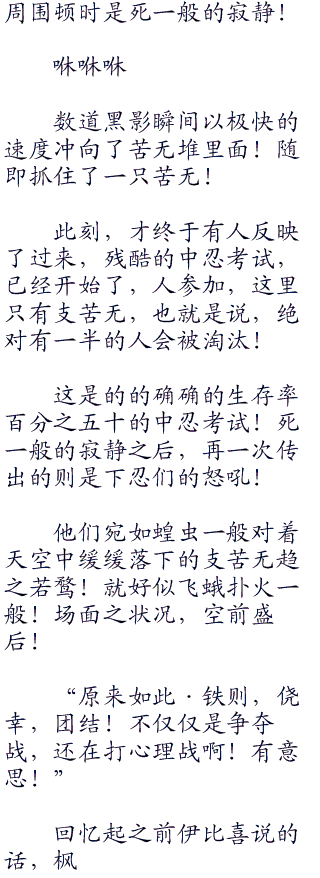 周围顿时是死一般的寂静！
咻咻咻
数道黑影瞬间以极快的
速度冲向了苦无堆里面！随
即抓住了一只苦无！
此刻，才终于有人反映
了过来，残酷的中忍考试，
已经开始了，人参加，这里
只有支苦无，也就是说，绝
对有一半的人会被淘汰！
这是的的确确的生存率
百分之五十的中忍考试！死
一般的寂静之后，再一次传
出的则是下忍们的怒吼！
他们宛如蝗虫一般对着
天空中缓缓落下的支苦无趋
之若鹜！就好似飞蛾扑火一
般！场面之状况，空前盛
后！
“原来如此·铁则，侥
幸，团结！不仅仅是争夺
战，还在打心理战啊！有意
思！”
回忆起之前伊比喜说的
话，枫